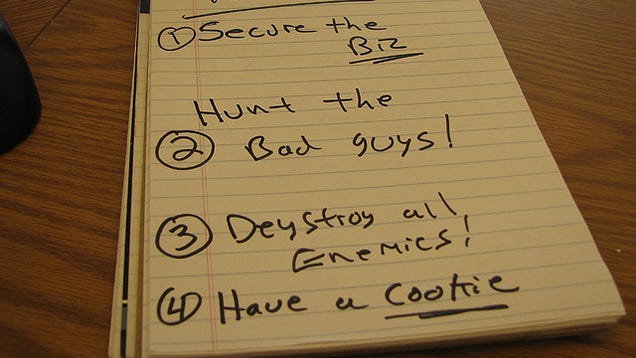 ① Secure the
Biz
Hunt the
② Bad guys!
③ Deystroy all
Enemies!
④ Have a Cookie